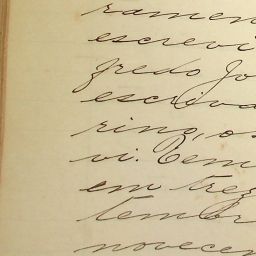 ramen
escrevi
fredo Jo
escriva
rino, o s
vi. Em
em trez
tembr
novecen